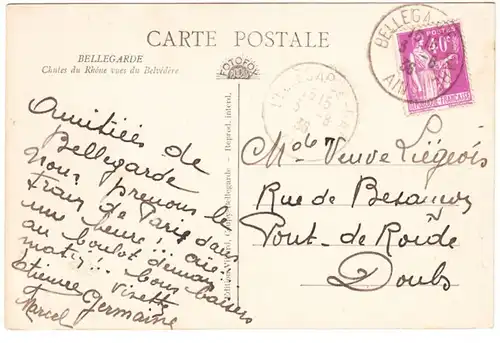 CARTE POSTALE
BELLEGARDE
Chutes du Rhône vues du Belvédère
FOTOFOX
BELLEGA
AIN
40c
POSTES FRANÇAISE
Amitiées de
Bellegarde
Nous prenons le
train de Paris dans
une heure!..
au boulot demain
matin!.. bons baisers
Yvette
Etienne Germaine
Marcel
Bellegarde - Reprod. interd.
Mde Veuve Liégeois
Rue de Besançon
Pont-de Roide
Doubs